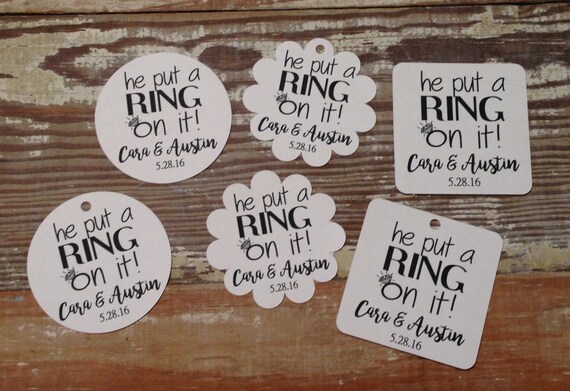 he put a
RING
on it!
Cara & Austin
5.28.16
he put a
RING
on it!
Cara & Austin
5.28.16
he put a
RING
on it!
Cara & Austin
5.28.16
he put a
RING
on it!
Cara & Austin
5.28.16
he put a
RING
on it!
Cara & Austin
5.28.16
he put a
RING
on it!
Cara & Austin
5.28.16